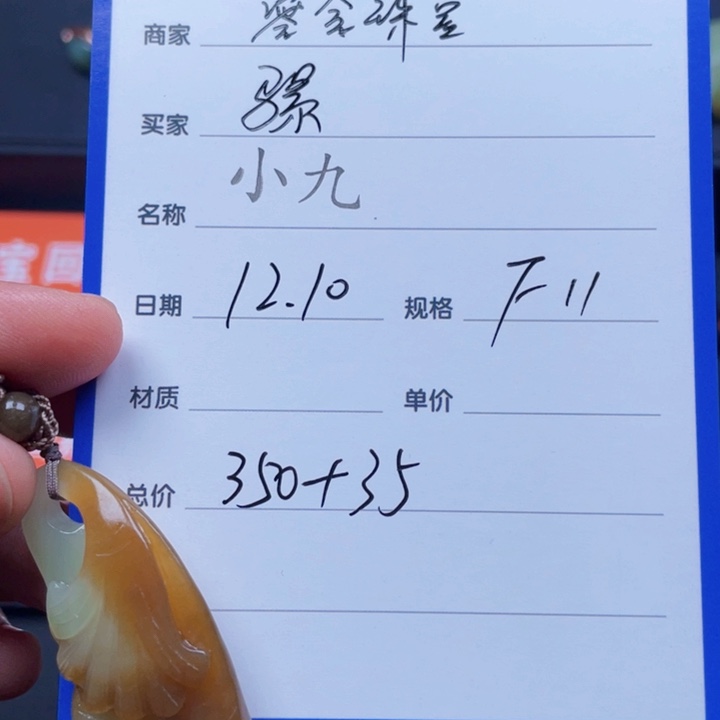 商家
买家 骡
名称 小九
日期 12.10 规格 F11
材质 单价
总价 350+35